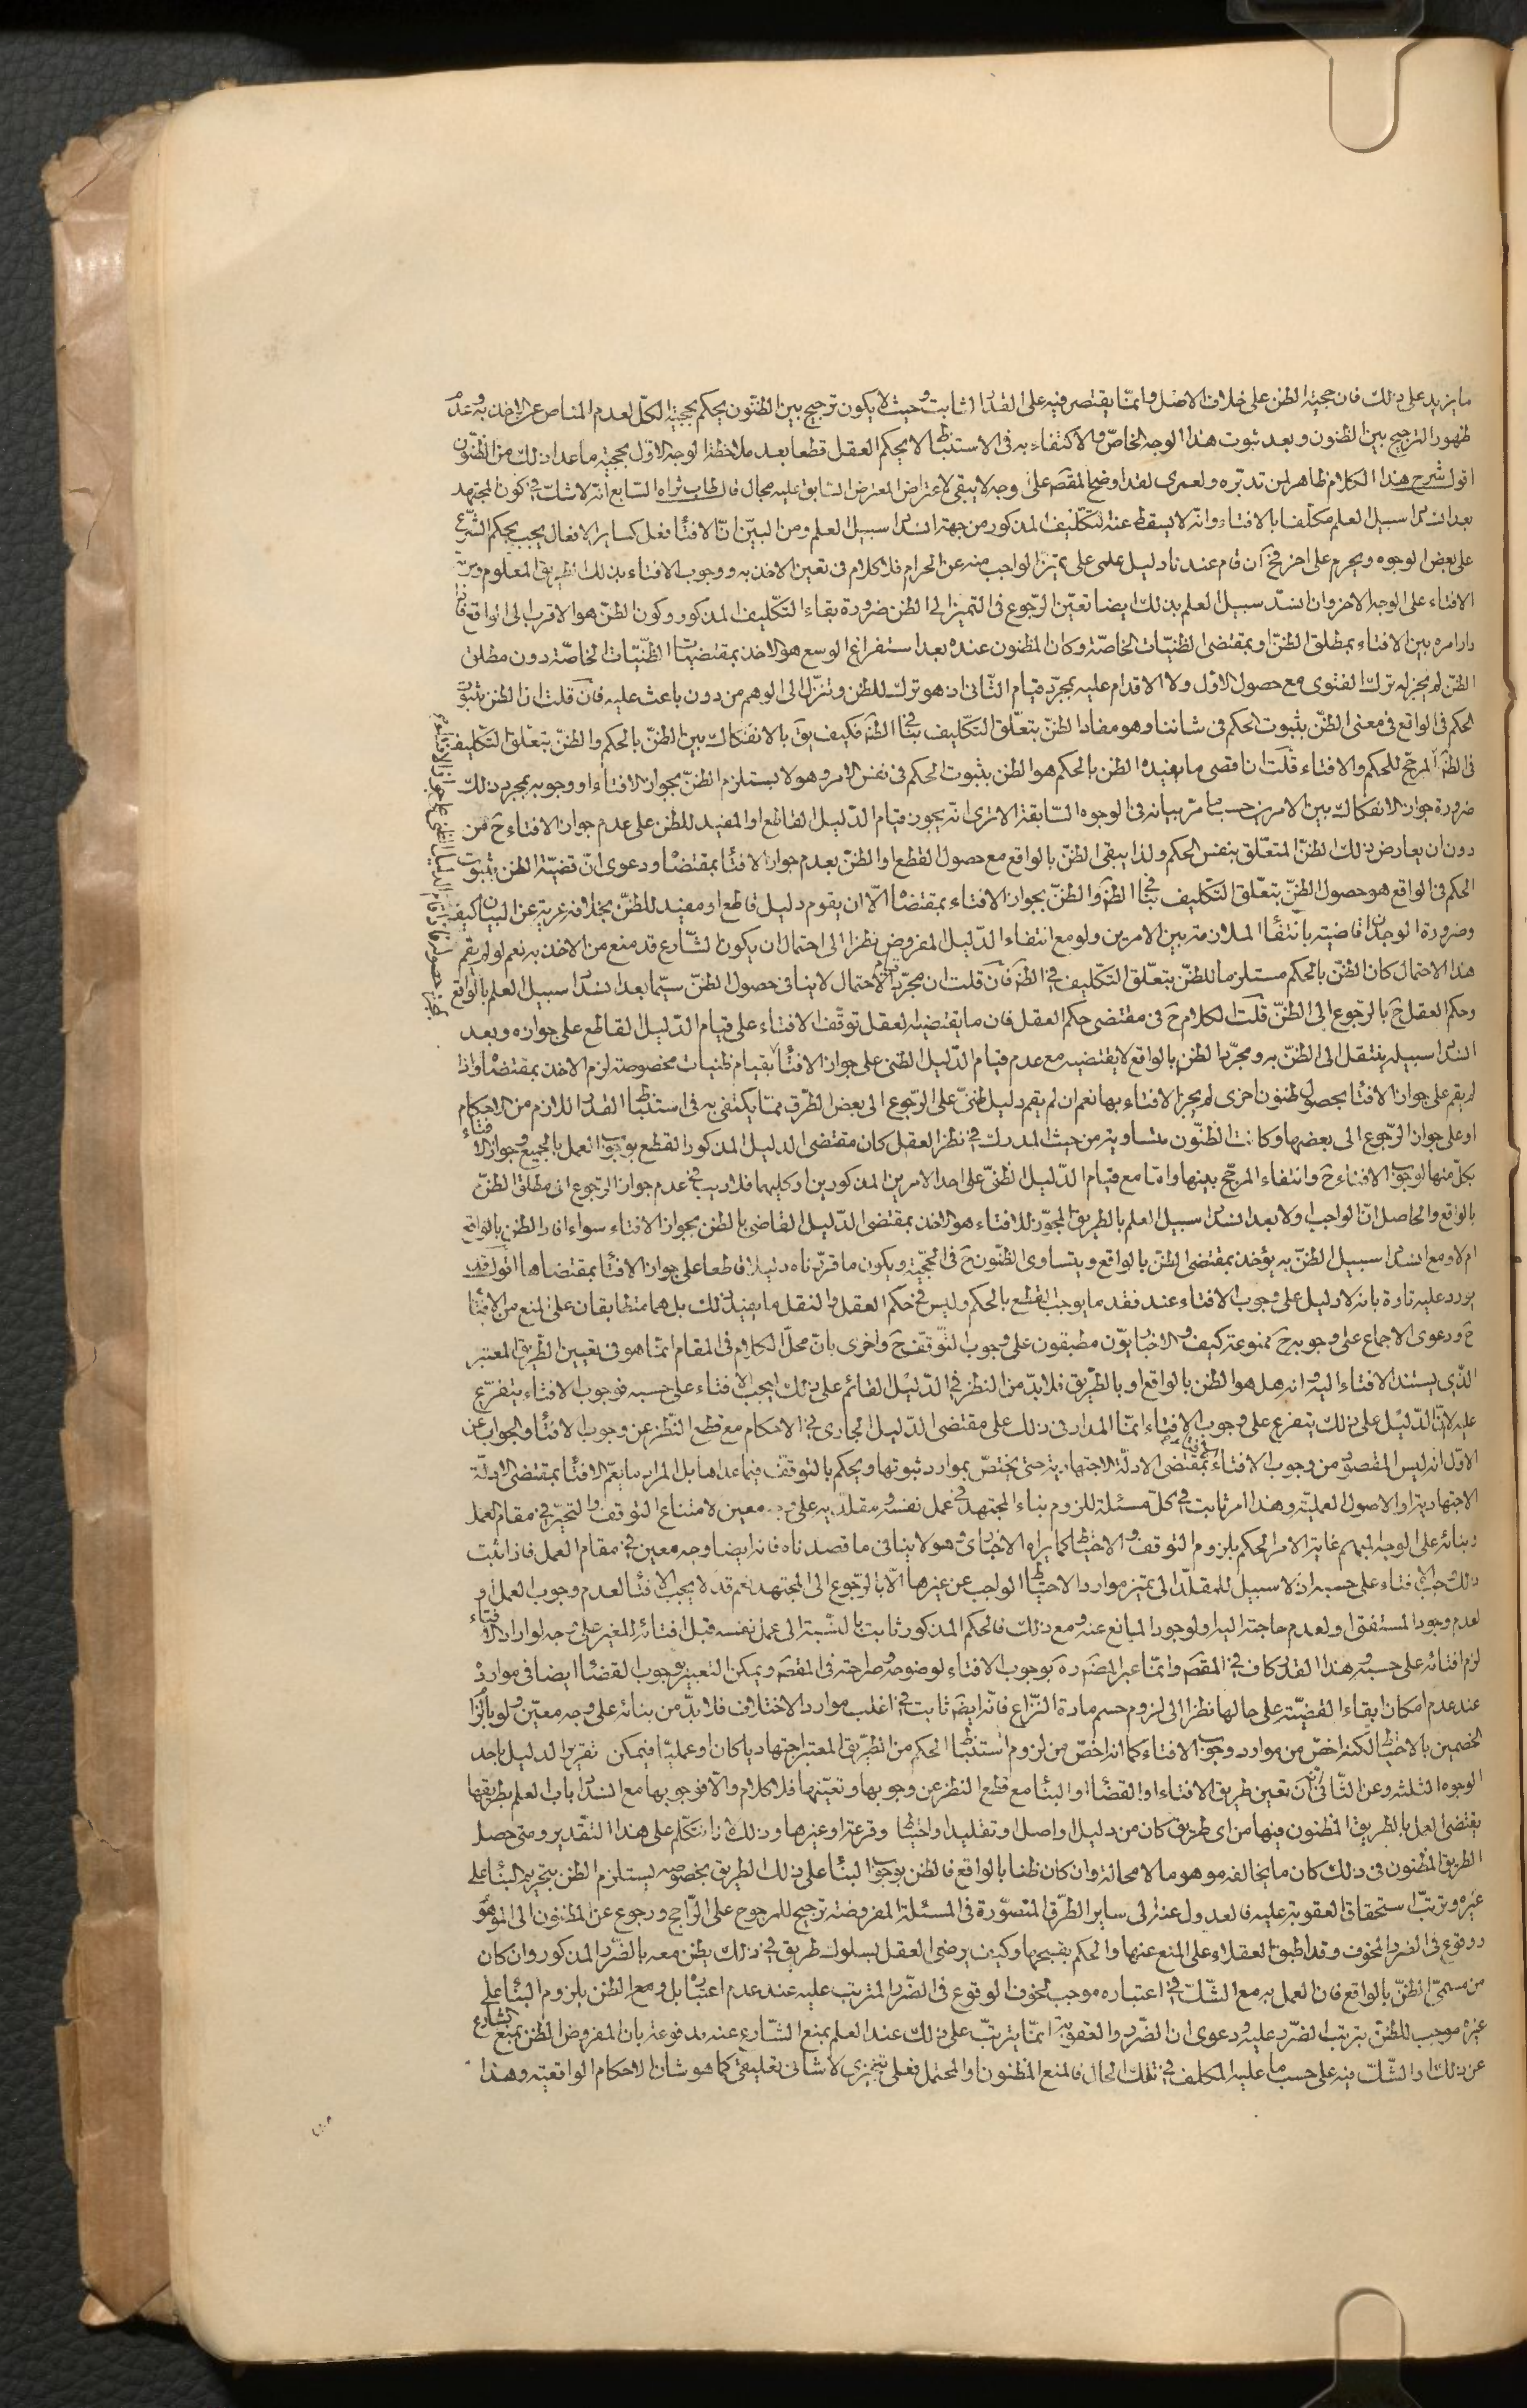 ما يزيد على ذلك فان حجية الظن على خلاف الاصل وانما يقتصر فيه على القدر الثابت وحيث لا يكون ترجيح بين الظنون يحكم بحجية الكل لعدم المناص عن الاخذ به وعدم
ظهور الترجيح بين الظنون وبعد ثبوت هذا الوجه الخاص والاكتفاء به فى الاستنباط لا يحكم العقل قطعا بعد ملاحظة الوجه الاول بحجية ما عدا ذلك من الظنون
اقول شرح هذا الكلام ظاهر لمن تدبره ولعمرى لقد اوضح المقصد على وجه لا يبقى لاعتراض المعترض السابق عليه مجال قال طاب ثراه السابع انه لا شك فى كون المجتهد
بعد انسداد سبيل العلم مكلفا بالافتاء وانه لا يسقط عنه التكليف المذكور من جهة انسداد سبيل العلم ومن البين ان الافتاء فعل كساير الافعال يجب بحكم الشرع
على بعض الوجوه ويحرم على اخر فح ان قام عندنا دليل علمى على تميز الواجب منه عن الحرام فلا كلام فى تعين الاخذ به ووجوب الافتاء بذلك الطريق المعلوم وحرمة
الافتاء على الوجه الاخر وان انسد سبيل العلم بذلك ايضا تعين الرجوع فى التميز الى الظن ضرورة بقاء التكليف المذكور وكون الظن هو الاقرب الى الواقع فاذا
دار امره بين الافتاء بمطلق الظن او بمقتضى الظنيات الخاصة وكان المظنون عنده بعد استفراغ الوسع هو الاخذ بمقتضيات الظنيات الخاصة دون مطلق
الظن لم يجز له ترك الفتوى مع حصول الاول ولا الاقدام عليه بمجرد قيام الثانى اذ هو ترك للظن وتنزل الى الوهم من دون باعث عليه فان قلت ان الظن بثبوت
الحكم فى الواقع فى معنى الظن بثبوت الحكم فى شاننا وهو مفاد الظن بتعلق التكليف بنا فى الظ فكيف يق بالانفكاك بين الظن بالحكم والظن بتعلق التكليف بنا
فى الظ المرجح للحكم والافتاء قلت ان اقصى ما يفيده الظن بالحكم هو الظن بثبوت الحكم فى نفس الامر وهو لا يستلزم الظن بجواز الافتاء او وجوبه بمجرد ذلك
ضرورة جواز الانفكاك بين الامرين حسب ما مر بيانه فى الوجوه السابقة الا ترى انه يجوز قيام الدليل القاطع او المفيد للظن على عدم جواز الافتاء ح من
دون ان يعارض ذلك الظن المتعلق بنفس الحكم ولذا يبقى الظن بالواقع مع حصول القطع او الظن بعدم جواز الافتاء بمقتضاه ودعوى ان قضية الظن بثبوت
الحكم فى الواقع هو حصول الظن بتعلق التكليف بنا فى الظ والظن بجواز الافتاء بمقتضاه الا ان يقوم دليل قاطع او مفيد للظن بخلافه عرية عن البيان كيف
وضرورة الوجدان قاضية بانتفاء الملازمة بين الامرين ولو مع انتفاء الدليل المفروض نظرا الى احتمال ان يكون الشارع قد منع من الاخذ به نعم لو لم يقم
هذا الاحتمال كان الظن بالحكم مستلزما للظن بتعلق التكليف فى الظ فان قلت ان مجرد قيام الاحتمال لا ينافى حصول الظن سيما بعد انسداد سبيل العلم بالواقع
وحكم العقل ح بالرجوع الى الظن قلت الكلام ح فى مقتضى حكم العقل فان ما يقتضيه العقل توقف الافتاء على قيام الدليل القاطع على جوازه وبعد
انسداد سبيله ينتقل الى الظن به ومجرد الظن بالواقع لا يقتضيه مع عدم قيام الدليل الظنى على جواز الافتاء بقيام ظنيات مخصوصة لزم الاخذ بمقتضاه واذا
لم يقم على جواز الافتاء بحصول ظنون اخرى لم يجز الافتاء بها نعم ان لم يقم دليل ظنى على الرجوع الى بعض الطرق مما يكتفى به فى استنباط القدر اللازم من الاحكام
او على جواز الرجوع الى بعضها وكانت الظنون متساوية من حيث المدرك فى نظر العقل كان مقتضى الدليل المذكور القطع بوجوب العمل بالجميع وجواز الافتاء
بكل منها لوجوب الافتاء ح وانتفاء المرجح بينها واما مع قيام الدليل الظنى على احد الامرين المذكورين او كليهما فلا ريب فى عدم جواز الرجوع الى مطلق الظن
بالواقع والحاصل ان الواجب اولا بعد انسداد سبيل العلم بالطريق المجوز للافتاء هو الاخذ بمقتضى الدليل القاضى بالظن بجواز الافتاء سواء افاد الظن بالواقع
ام لا ومع انسداد سبيل الظن به يؤخذ بمقتضى الظن بالواقع ويتساوى الظنون ح فى الحجية ويكون ما قررناه دليلا قاطعا على جواز الافتاء بمقتضاها اقول قد
يورد عليه تارة بانه لا دليل على وجوب الافتاء عند فقد ما يوجب القطع بالحكم وليس فى حكم العقل والنقل ما يفيد ذلك بل هما متطابقان على المنع من الافتاء
ح ودعوى الاجماع على وجوبه ح ممنوعة كيف والاخباريون مطبقون على وجوب التوقف ح واخرى بان محل الكلام فى المقام انما هو فى تعيين الطريق المعتبر
الذى يستند الافتاء اليه وانه هل هو الظن بالواقع او بالطريق فلا بد من النظر فى الدليل القائم على ذلك ليجب الافتاء على حسبه فوجوب الافتاء يتفرع
عليه لان الدليل على ذلك يتفرع على وجوب الافتاء انما المدار فى ذلك على مقتضى الدليل الجارى فى الاحكام مع قطع النظر عن وجوب الافتاء والجواب عن
الاول انه ليس المقصود من وجوب الافتاء بمقتضى الادلة الاجتهادية حتى يختص بموارد ثبوتها ويحكم بالتوقف فيما عداها بل المراد ما يعم الافتاء بمقتضى الادلة
الاجتهادية او الاصول العملية وهذا امر ثابت فى كل مسئلة للزوم بناء المجتهد فى عمل نفسه ومقلديه على وجه معين لامتناع التوقف والتحير فى مقام العمل
وبنائه على الوجه المبهم غاية الامر الحكم بلزوم التوقف والاحتياط كما يراه الاخبارى وهو لا ينافى ما قصدناه فانه ايضا وجه معين فى مقام العمل فاذا ثبت
ذلك وجب الافتاء على حسبه اذ لا سبيل للمقلد الى تميز موارد الاحتياط الواجب عن غيرها الا بالرجوع الى المجتهد نعم قد لا يجب الافتاء لعدم وجوب العمل او
لعدم وجود المستفتى او لعدم حاجته اليه او لوجود المانع عنه ومع ذلك فالحكم المذكور ثابت بالنسبة الى عمل نفسه قبل افتائه للغير على وجه لو اراد الافتاء
لزم افتائه على حسبه وهذا القدر كاف فى المقصد وانما عبر المصنف ره بوجوب الافتاء لوضوحه وصراحته فى المقصد ويمكن التعبير بوجوب القضاء ايضا فى موارده
عند عدم امكان ابقاء القضية على حالها نظرا الى لزوم حسم مادة النزاع فانه ايضا ثابت فى اغلب موارد الاختلاف فلا بد من بنائه على وجه معين ولو بالزام
الخصمين بالاحتياط لكنه اخص من موارد وجوب الافتاء كما انه اخص من لزوم استنباط الحكم من الطريق المعتبر اجتهاديا كان او عمليا فيمكن تقرير الدليل باحد
الوجوه الثلثة وعن الثانى ان تعين طريق الافتاء او القضاء او البناء مع قطع النظر عن وجوبها وتعينها فلا كلام والا فوجوبها مع انسداد باب العلم بطريقها
يقتضى العمل بالطريق المظنون فيها من اى طريق كان من دليل او اصل او تقليد او احتياط او قرعة او غيرها وذلك انا نتكلم على هذا التقدير ومتى حصل
الطريق المظنون فى ذلك كان ما يخالفه موهوما لا محالة وان كان ظنا بالواقع فالظن بوجوب البناء على ذلك الطريق بخصوصه يستلزم الظن بتحريم البناء على
غيره وترتب استحقاق العقوبة عليه فالعدول عنه الى ساير الطرق المتصورة فى المسئلة المفروضة ترجيح للمرجوح على الراجح ورجوع عن المظنون الى الموهوم
ووقوع فى الضرر المخوف وقد اطبق العقلاء على المنع عنها والحكم بقبحها وكيف يرضى العقل بسلوك طريق فى ذلك يظن معه بالضرر المذكور وان كان
من مسمى الظن بالواقع فان العمل به مع الشك فى اعتباره موجب لخوف الوقوع فى الضرر المترتب عليه عند عدم اعتباره بل ومع الظن بلزوم البناء على
غيره موجب للظن بترتب الضرر عليه ودعوى ان الضرر والعقوبة انما يترتب على ذلك عند العلم بمنع الشارع عنه مدفوعة بان المفروض الظن بمنع الشارع
عن ذلك او الشك فيه على حسب ما عليه المكلف فى تلك الحال فالمنع المظنون او المحتمل فعلى تنجيزى لا شانى تعليقى كما هو شان الاحكام الواقعية وهذا